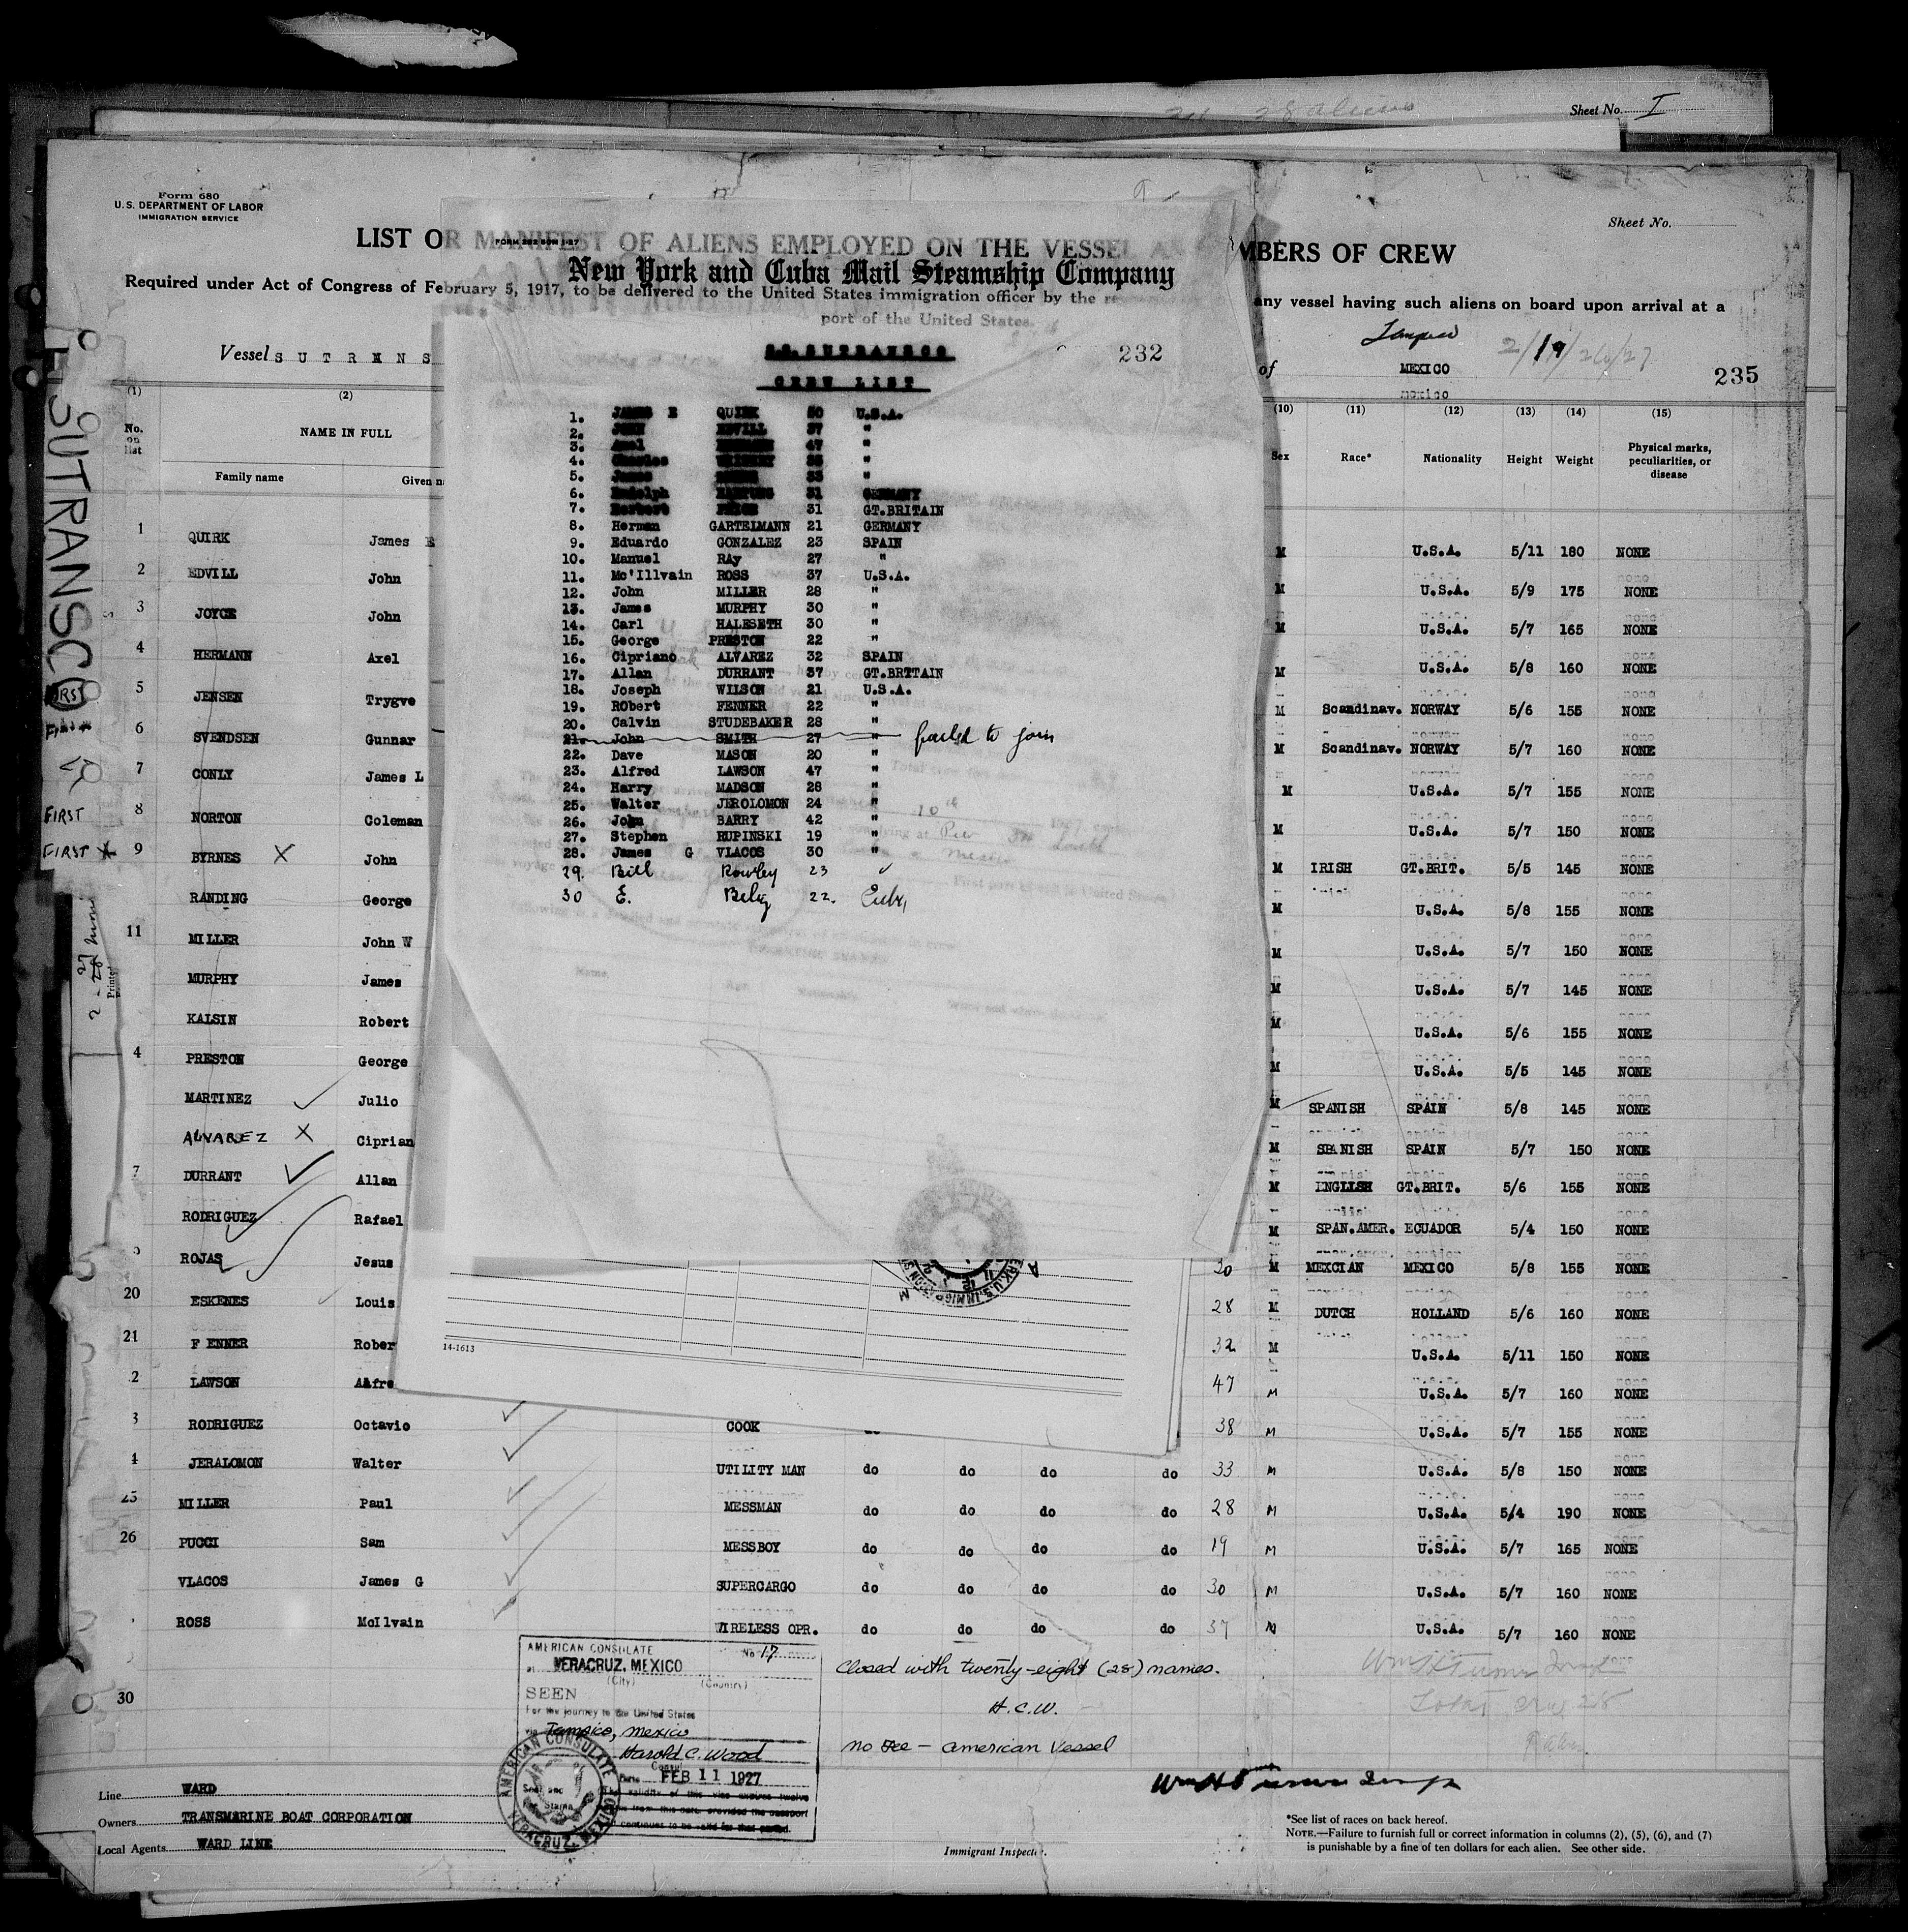 28 aliens
Sheet No. I
Form 680
U.S. DEPARTMENT OF LABOR
IMMIGRATION SERVICE
Sheet No.
LIST OR MANIFEST OF ALIENS EMPLOYED ON THE VESSEL AS MBERS OF CREW
FORM 382 50M 1-27
New York and Cuba Mail Steamship Company
Required under Act of Congress of February 5, 1917, to be delivered to the United States immigration officer by the any vessel having such aliens on board upon arrival at a
port of the United States.
Vessel S U T R A N S
S.S. SUTRANSCO
232
CREW LIST
1. JAMES E QUIRK 50 U.S.A.
2. JOHN EDVILL 37 "
3. Axel 47 "
4. Charles "
5. James "
6. Rudolph 31 GERMANY
7. Herbert PRICE 31 GT.BRITAIN
8. Herman GARTELMANN 21 GERMANY
9. Eduardo GONZALEZ 23 SPAIN
10. Manuel RAy 27 "
11. Mc'Illvain ROSS 37 U.S.A.
12. John MILLER 28 "
13. James MURPHY 30 "
14. Carl HALESETH 30 "
15. George PRESTON 22 "
16. Cipriano ALVAREZ 32 SPAIN
17. Allan DURRANT 37 GT.BRTTAIN
18. Joseph WILSON 21 U.S.A.
19. RObert FENNER 22 "
20. Calvin STUDEBAKER 28 "
21. John SMITH 27 " failed to join
22. Dave MASON 20 "
23. Alfred LAWSON 47 "
24. Harry MADSON 28 "
25. Walter JEROLOMON 24 "
26. John BARRY 42 "
27. Stephen RUPINSKI 19 "
28. James G VLACOS 30 "
29. Bill Rowley 23 "
30 E. 22.
Tampico
of MEXICO
mexico
235
SUTRANSCO
FIRST
FIRST
FIRST
(1) (2) (10) (11) (12) (13) (14) (15)
No. on list
NAME IN FULL
Family name
Sex Race* Nationality Height Weight Physical marks, peculiarities, or disease
1 QUIRK James E M U.S.A. 5/11 180 NONE
2 EDVILL John M U.S.A. 5/9 175 NONE
3 JOYCE John M U.S.A. 5/7 165 NONE
4 HERMANN Axel M U.S.A. 5/8 160 NONE
5 JENSEN Trygve M Scandinav. NORWAY 5/6 155 NONE
6 SVENDSEN Gunnar M Scandinav. NORWAY 5/7 160 NONE
7 CONLY James L M U.S.A. 5/7 155 NONE
8 NORTON Coleman M U.S.A. 5/7 150 NONE
9 BYRNES X John M IRISH GT.BRIT. 5/5 145 NONE
RANDING George M U.S.A. 5/8 155 NONE
11 MILLER John W M U.S.A. 5/7 150 NONE
MURPHY James M U.S.A. 5/7 145 NONE
KALSIN Robert M U.S.A. 5/6 155 NONE
4 PRESTON George M U.S.A. 5/5 145 NONE
MARTINEZ Julio M SPANISH SPAIN 5/8 145 NONE
ALVAREZ X Ciprian M SPANISH SPAIN 5/7 150 NONE
7 DURRANT Allan M ENGLISH GT.BRIT. 5/6 155 NONE
RODRIGUEZ Rafael M SPAN.AMER. ECUADOR 5/4 150 NONE
ROJAS Jesus 30 M MEXCIAN MEXICO 5/8 155 NONE
20 ESKENES Louis 28 M DUTCH HOLLAND 5/6 160 NONE
21 F ENNER Rober 32 M U.S.A. 5/11 150 NONE
14-1613
2 LAWSON Alfre 47 M U.S.A. 5/7 160 NONE
3 RODRIGUEZ Octavio COOK 38 M U.S.A. 5/7 155 NONE
4 JERALOMON Walter UTILITY MAN do do do do 33 M U.S.A. 5/8 150 NONE
25 MILLER Paul MESSMAN do do do do 28 M U.S.A. 5/4 190 NONE
26 PUCCI Sam MESSBOY do do do do 19 M U.S.A. 5/7 165 NONE
VLACOS James G SUPERCARGO do do do do 30 M U.S.A. 5/7 160 NONE
ROSS McIlvain WIRELESS OPR. do do do do 37 M U.S.A. 5/7 160 NONE
30
AMERICAN CONSULATE No. 17
at VERACRUZ, MEXICO
(City) (Country)
SEEN
For the journey to the United States
via Tampico, Mexico
Harold C. Wood
Consul
Date FEB 11 1927
The validity of this visa expires twelve
from this date provided the passport
continues to be valid for that period.
AMERICAN CONSULATE VERACRUZ, MEXICO
Closed with twenty-eight (28) names.
H.C.W.
No Fee — American Vessel
Total Crew 28
Line WARD
Owners TRANSMARINE BOAT CORPORATION
Local Agents WARD LINE
Immigrant Inspector.
*See list of races on back hereof.
NOTE.—Failure to furnish full or correct information in columns (2), (5), (6), and (7)
is punishable by a fine of ten dollars for each alien. See other side.